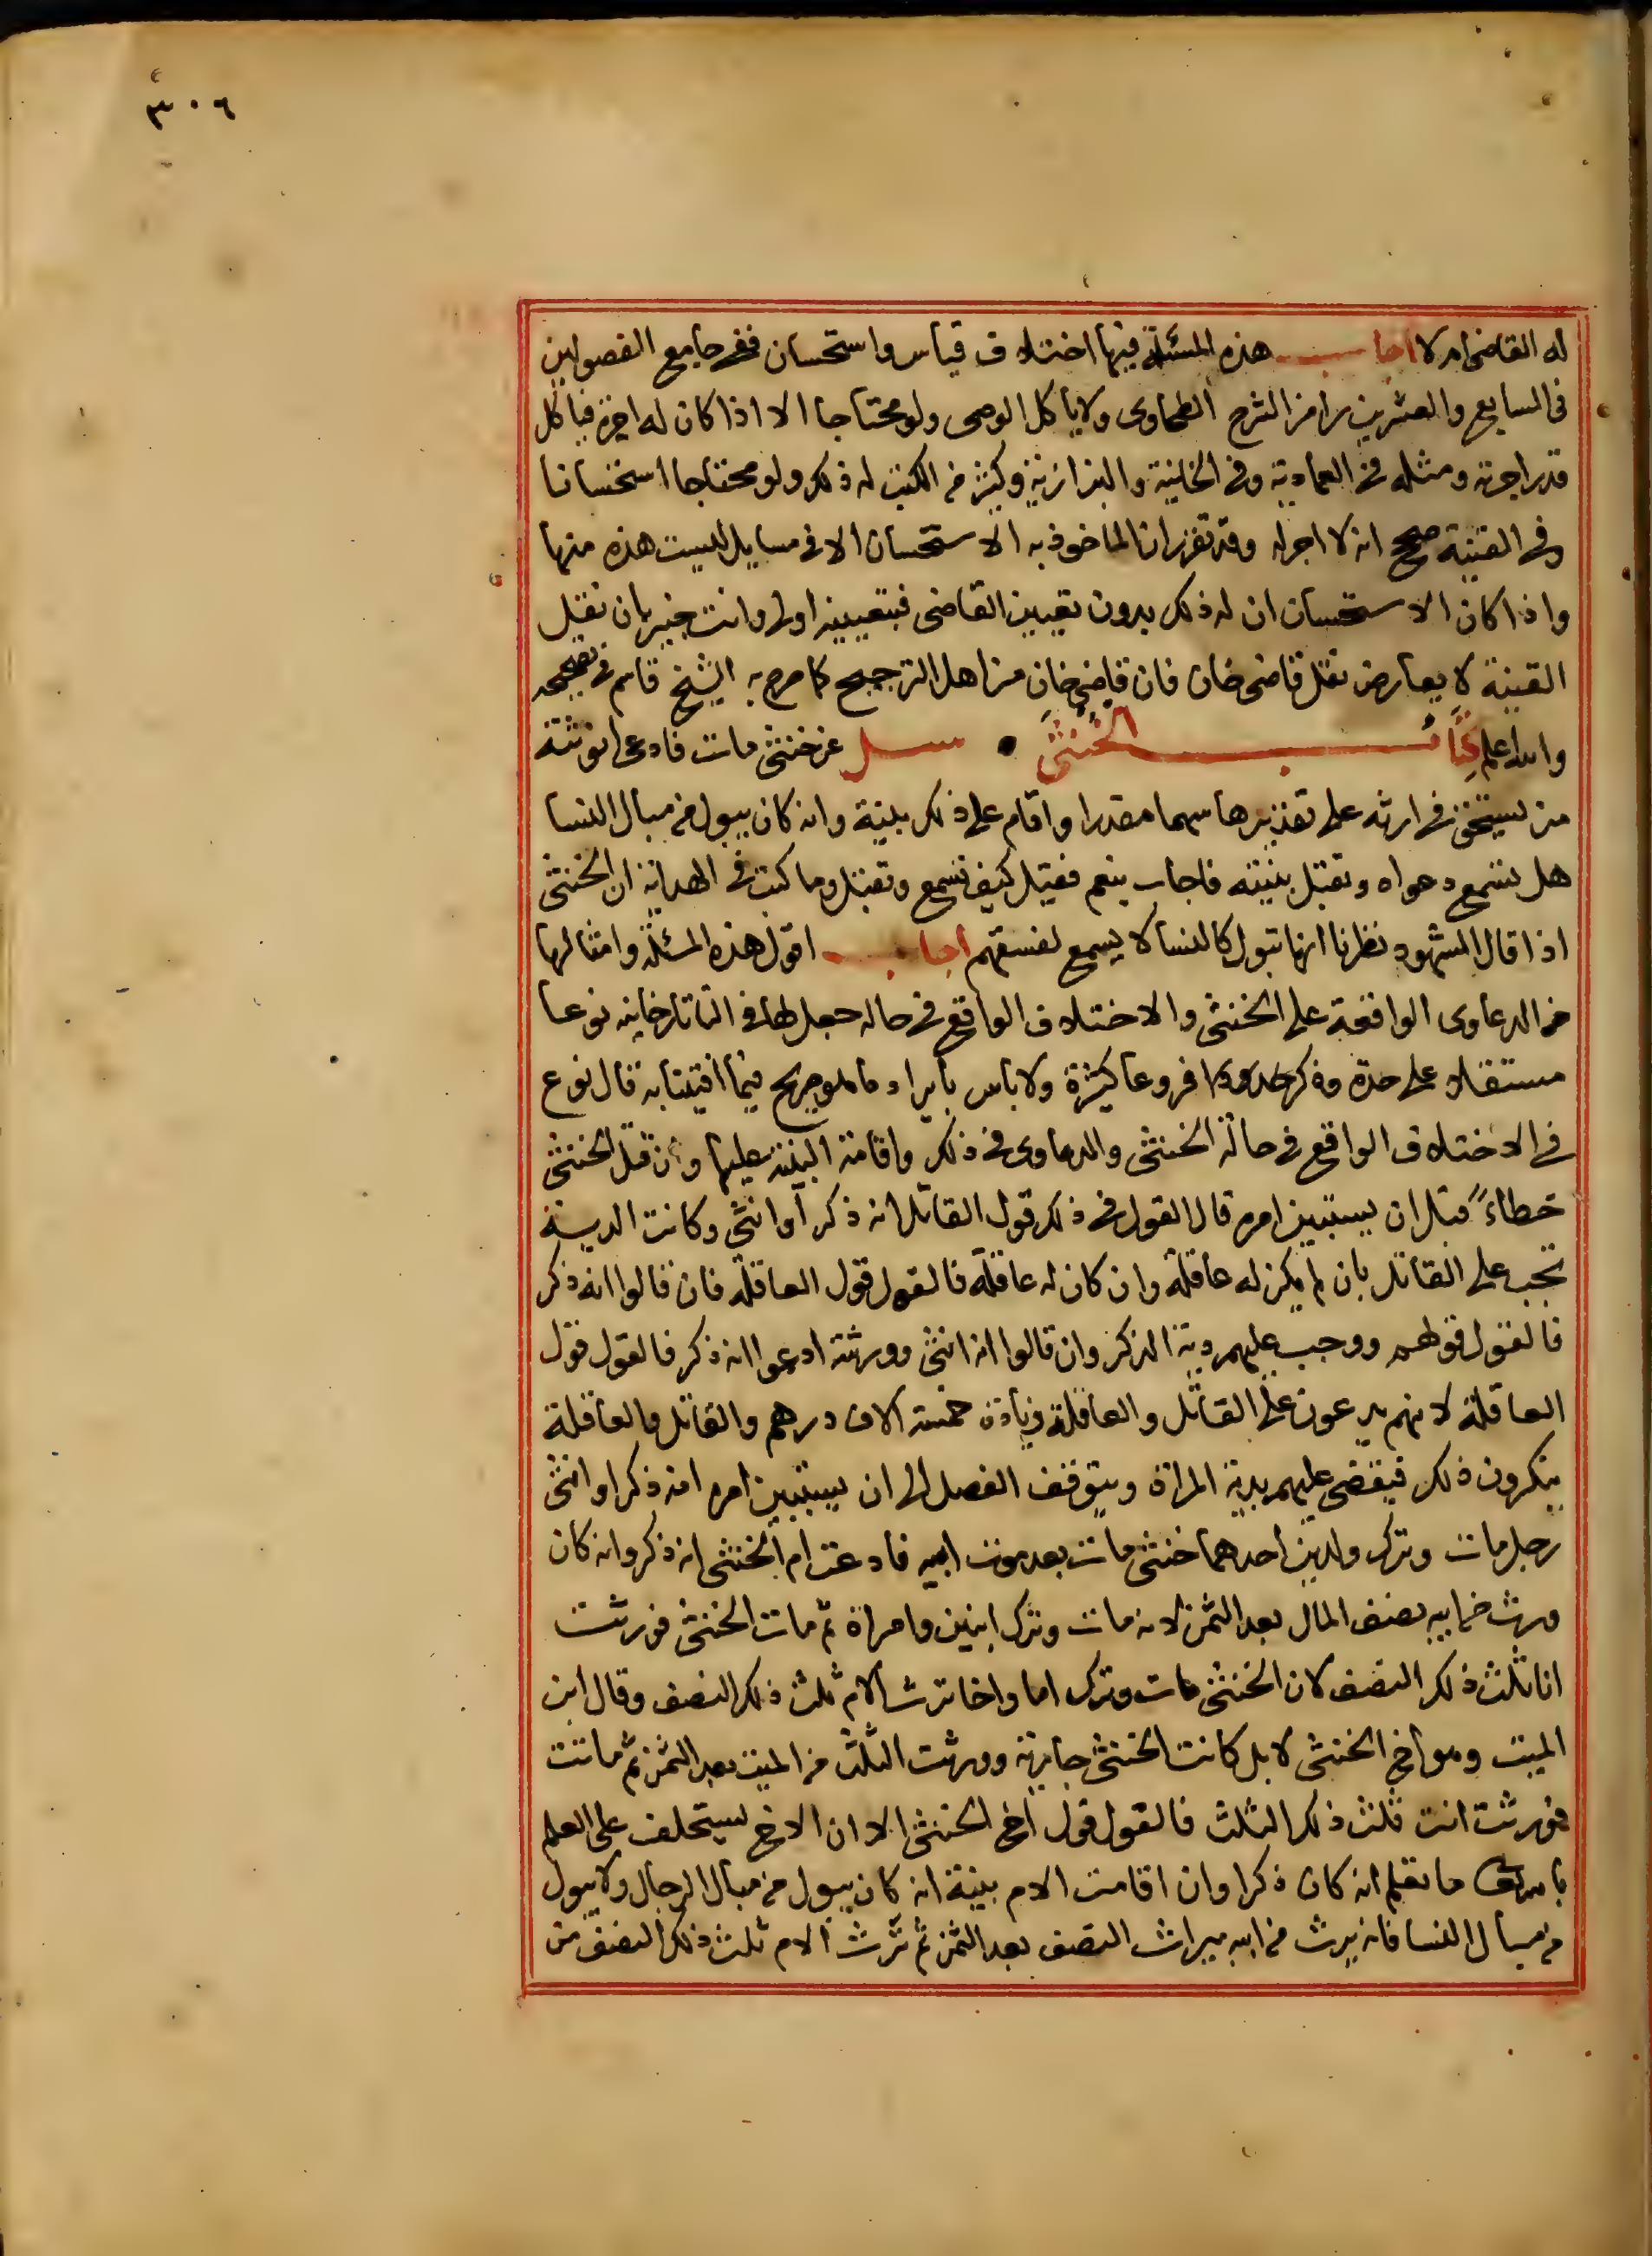 ٣٠٦
له القاضى ام لا اجاب هذه المسئلة فيها اختلاف قياس واستحسان ففى جامع الفصولين
فى السابع والعشرين رامزا لشرح الطحاوى ولا ياكل الوصى ولو محتاجا الا اذا كان له اجرة فياكل
قدر اجرته ومثله فى العمادية وفى الخانية والبزازية وكثير من الكتب له ذلك ولو محتاجا استحسانا
وفى القنية صحح انه لا اجر له وقد تقرر ان الماخوذ به الاستحسان الا فى مسايل ليست هذه منها
واذا كان الاستحسان ان له ذلك بدون تعيين القاضى فبتعيينه اولى وانت خبير بان نقل
القنية لا يعارض نقل قاضى خان فان قاضى خان من اهل الترجيح كما صرح به الشيخ قاسم فى تصحيحه
والله اعلم كتاب الخنثى سئل عن خنثى مات فادعى
من يستحق فى ارثه على تقديرها سهما مقدرا واقام على ذلك بينة وانه كان يبول من مبال النسا
هل تسمع دعواه وتقبل بينته فاجاب بنعم فقيل كيف تسمع وتقبل وما كتب فى الهداية ان الخنثى
اذا قال الشهود نظرنا انها تبول كالنسا لا يسمع لفسقهم اجاب اقول هذه المسئلة وامثالها
من الدعاوى الواقعة على الخنثى والاختلاف الواقع فى حاله جعل لها فى التاتارخانيه نوعا
مستقلا على حدة وذكر فروعا كثيرة ولا باس بايراد ما هو صريح فيما افتينا به قال نوع
فى الاختلاف الواقع فى حالة الخنثى والدعاوى فى ذلك واقامة البينة عليها وان قتل الخنثى
خطاءً قبل ان يستبين امره قال القول فى ذلك قول القاتل انه ذكر او انثى وكانت الدية
تجب على القاتل بان لم يكن له عاقلة وان كان له عاقلة فالقول قول العاقلة فان قالوا انه ذكر
فالقول قولهم ووجب عليهم دية الذكر وان قالوا انه انثى وورثته ادعوا انه ذكر فالقول قول
العاقلة لانهم يدعون على القاتل والعاقلة زيادة خمسة الاف درهم والقاتل والعاقلة
ينكرون ذلك فيقضى عليهم بدية المراة ويتوقف الفصل الى ان يستبين امره انه ذكر او انثى
رجل مات وترك ولدين احدهما خنثى مات بعد موت ابيه فادعت ام الخنثى انه ذكر وانه كان
ورث من ابيه نصف المال بعد الثمن لانه مات وترك ابنين وامراة ثم مات الخنثى فورثت
انا ثلث ذلك النصف لان الخنثى مات وترك اما واخا ترث الام ثلث ذلك النصف وقال ابن
الميت وهو اخ الخنثى لا بل كانت الخنثى جارية وورثت الثلث من الميت بعد الثمن ثم ماتت
فورثت انت ثلث ذلك الثلث فالقول قول اخ الخنثى الا ان الاخ يستحلف على العلم
بالله ما تعلم انه كان ذكرا وان اقامت الام بينة انه كان يبول من مبال الرجال ولا يبول
من مبال النسا فانه يرث من ابيه ميراث النصف بعد الثمن ثم ترث الام ثلث ذلك النصف من